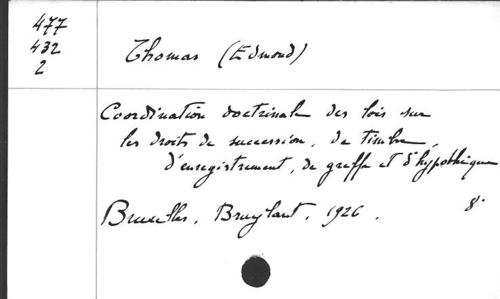 477
432
2
Thomas (Edmond)
Coordination doctrinale des lois sur
les droits de succession, de timbre,
d'enregistrement, de greffe et d'hypothèque
Bruxelles, Bruylant, 1926. 8°